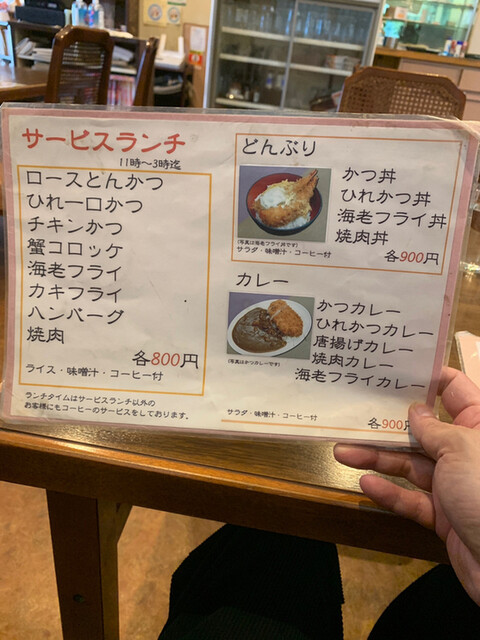 サービスランチ
11時〜3時迄
ロースとんかつ
ひれ一口かつ
チキンかつ
蟹コロッケ
海老フライ
カキフライ
ハンバーグ
焼肉
各800円
ライス・味噌汁・コーヒー付
ランチタイムはサービスランチ以外の
お客様にもコーヒーのサービスをしております。
どんぶり
かつ丼
ひれかつ丼
海老フライ丼
焼肉丼
(写真は海老フライ丼です)
サラダ・味噌汁・コーヒー付
各900円
カレー
かつカレー
ひれかつカレー
唐揚げカレー
焼肉カレー
海老フライカレー
(写真はかつカレーです)
サラダ・味噌汁・コーヒー付
各900円